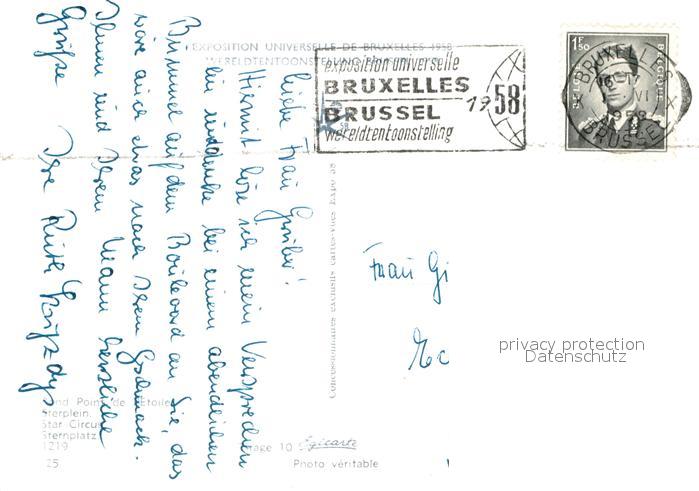 EXPOSITION UNIVERSELLE DE BRUXELLES 1958
WERELDTENTOONSTELLING
exposition universelle
BRUXELLES
BRUSSEL
wereldtentoonstelling
1958
1F50
BELGIQUE
BRUXELLES
VI
BRUSSEL
Liebe Frau
Hiermit löse ich mein Versprechen
ein und denke bei einem abendlichen
Bummel auf dem Boulevard an Sie, das
wäre auch etwas nach Ihrem Geschmack.
Ihnen und Ihrem Mann herzliche
Grüße Ihre Ruth
Concessionnaires exclusifs cartes-vues Expo 58
Frau Gi
privacy protection
Datenschutz
Rond Point de l'Etoile
Sterplein.
Star Circus
Sternplatz
1219
25
Egicarte
Photo véritable